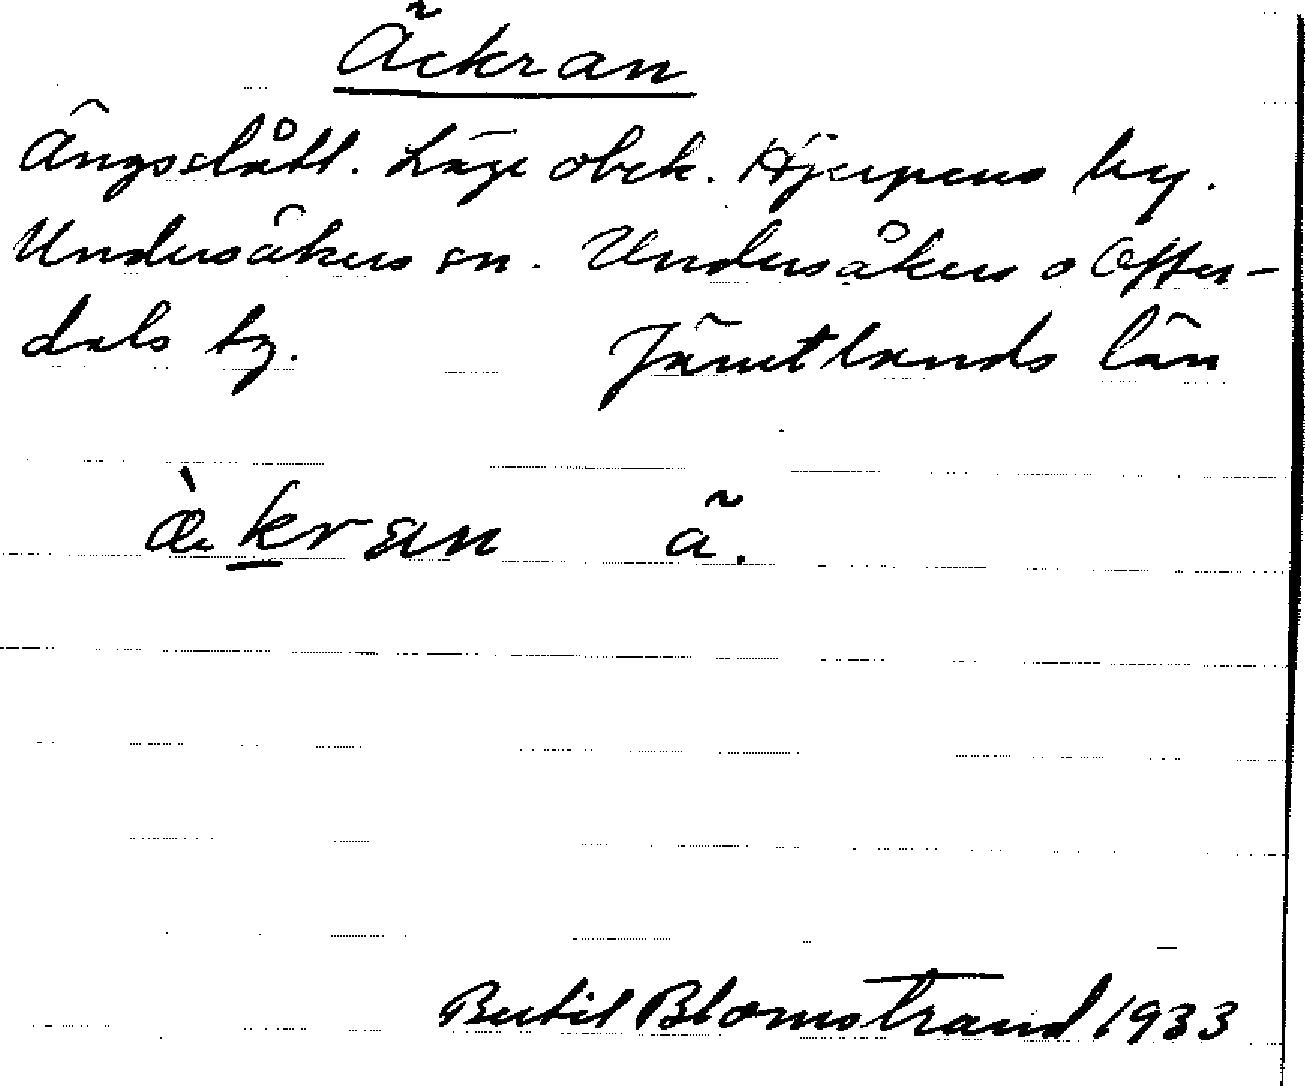 Äckran
Ängslått. Läge obek. Hjerpens by.
Undersåkers sn. Undersåkers o Offer-
dals tg. Jämtlands län
æ̀kran ä.
Bertil Blomstrand 1933